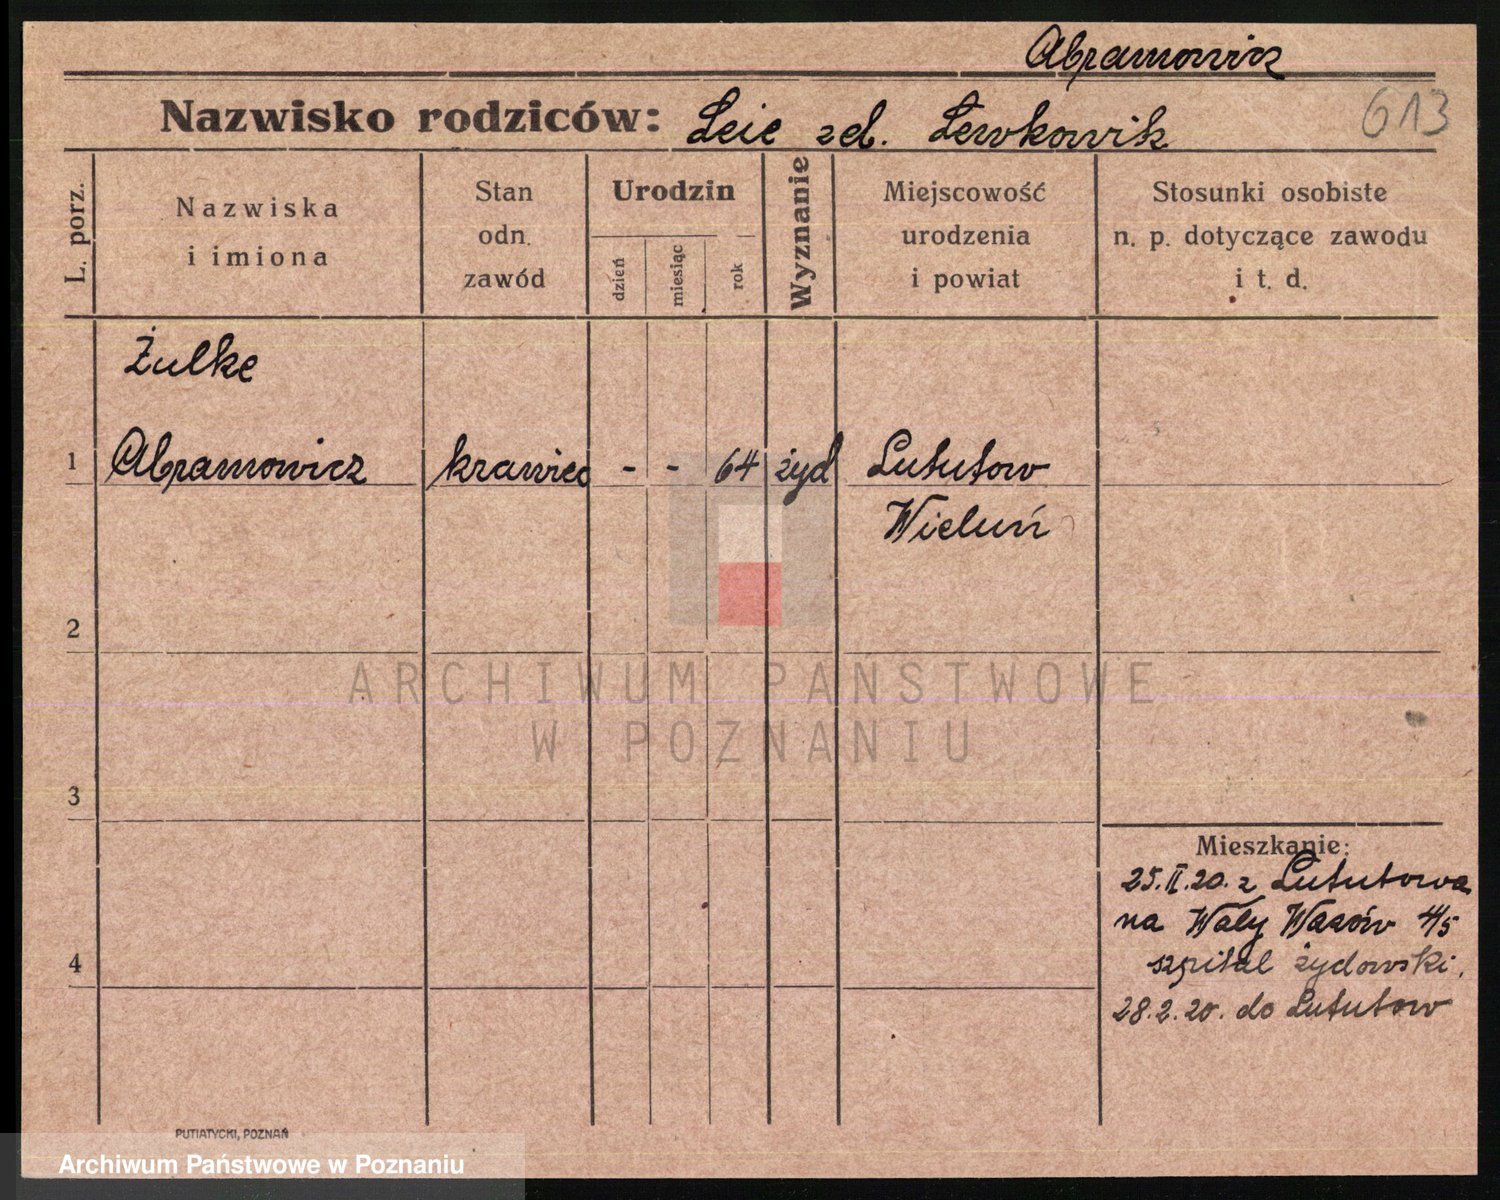 Abramowicz
613
Nazwisko rodziców: Leie zd. Lewkowik
L. porz.
Nazwiska
i imiona
Stan
odn.
zawód
Urodzin
dzień
miesiąc
rok
Wyznanie
Miejscowość
urodzenia
i powiat
Stosunki osobiste
n. p. dotyczące zawodu
i t. d.
Żulke
1 Abramowicz krawiec - - 64 żyd Lututow
Wieluń
2
ARCHIWUM PAŃSTWOWE
W POZNANIU
3
Mieszkanie:
25.II.20. z Lututowa
na Wały Wazów 4/5
szpital żydowski.
4
28.2.20. do Lututow
PUTIATYCKI, POZNAŃ
Archiwum Państwowe w Poznaniu